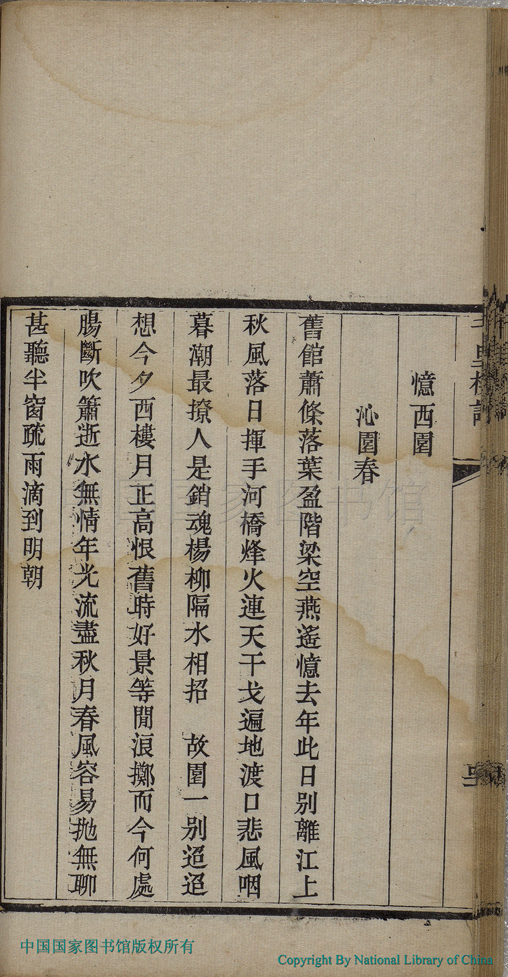 憶西園
沁園春
舊館蕭條落葉盈階梁空燕遙憶去年此日別離江上
秋風落日揮手河橋烽火連天干戈遍地渡口悲風咽
暮潮最撩人是銷魂楊柳隔水相招　故園一別迢迢
想今夕西樓月正高恨舊時好景等閒浪擲而今何處
腸斷吹簫逝水無情年光流盡秋月春風容易拋無聊
甚聽半窗疏雨滴到明朝
中国国家图书馆版权所有
Copyright By National Library of China